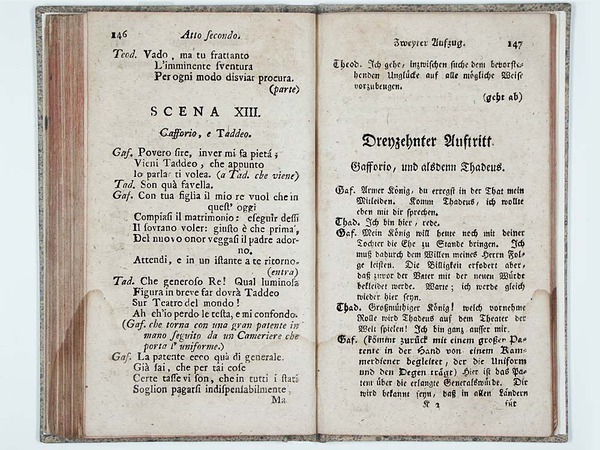 146 Atto secondo.
Teod. Vado, ma tu frattanto
L'imminente sventura
Per ogni modo disviar procura.
(parte)
SCENA XIII.
Gafforio, e Taddeo.
Gaf. Povero sire, inver mi fa pietá;
Vieni Taddeo, che appunto
Io parlarti volea. (a Tad. che viene)
Tad. Son quà favella.
Gaf. Con tua figlia il mio re vuol che in
quest' oggi
Compiasi il matrimonio: eseguir dessi
Il sovrano voler: giusto è che prima,
Del nuovo onor veggasi il padre ador-
no.
Attendi, e in un istante a te ritorno.
(entra)
Tad. Che generoso Re! Qual luminosa
Figura in breve far dovrà Taddeo
Sur Teatro del mondo!
Ah ch'io perdo le testa, e mi confondo.
(Gaf. che torna con una gran patente in
mano seguito da un Cameriere che
porta l'uniforme.)
Gaf. La patente ecco quà di generale.
Già sai, che per tai cose
Certe tasse vi son, che in tutti i stati
Soglion pagarsi indispensabilmente
Ma
Zweyter Aufzug. 147
Theod. Ich gehe, inzwischen suche dem bevorste-
henden Unglücke auf alle mögliche Weise
vorzubeugen.
(geht ab)
Dreyzehnter Auftritt.
Gafforio, und alsdenn Thadeus.
Gaf. Armer König, du erregst in der That mein
Mitleiden. Komm Thadeus, ich wollte
eben mit dir sprechen.
Thad. Ich bin hier, rede.
Gaf. Mein König will heute noch mit deiner
Tochter die Ehe zu Stande bringen. Ich
muß dadurch dem Willen meines Herrn Fol-
ge leisten. Die Billigkeit erfodert aber,
daß zuvor der Vater mit der neuen Würde
bekleidet werde. Warte; ich werde gleich
wieder hier seyn.
Thad. Großmüthiger König! welch vornehme
Rolle wird Thadeus auf dem Theater der
Welt spielen! Ich bin ganz ausser mir.
Gaf. (kömmt zurück mit einem großen Pa-
tente in der Hand von einem Kam-
merdiener begleitet, der die Uniform
und den Degen trägt) Hier ist das Pa-
tent über die erlangte Generalswürde. Dir
wird bekannt seyn, daß in allen Ländern
K 2 für